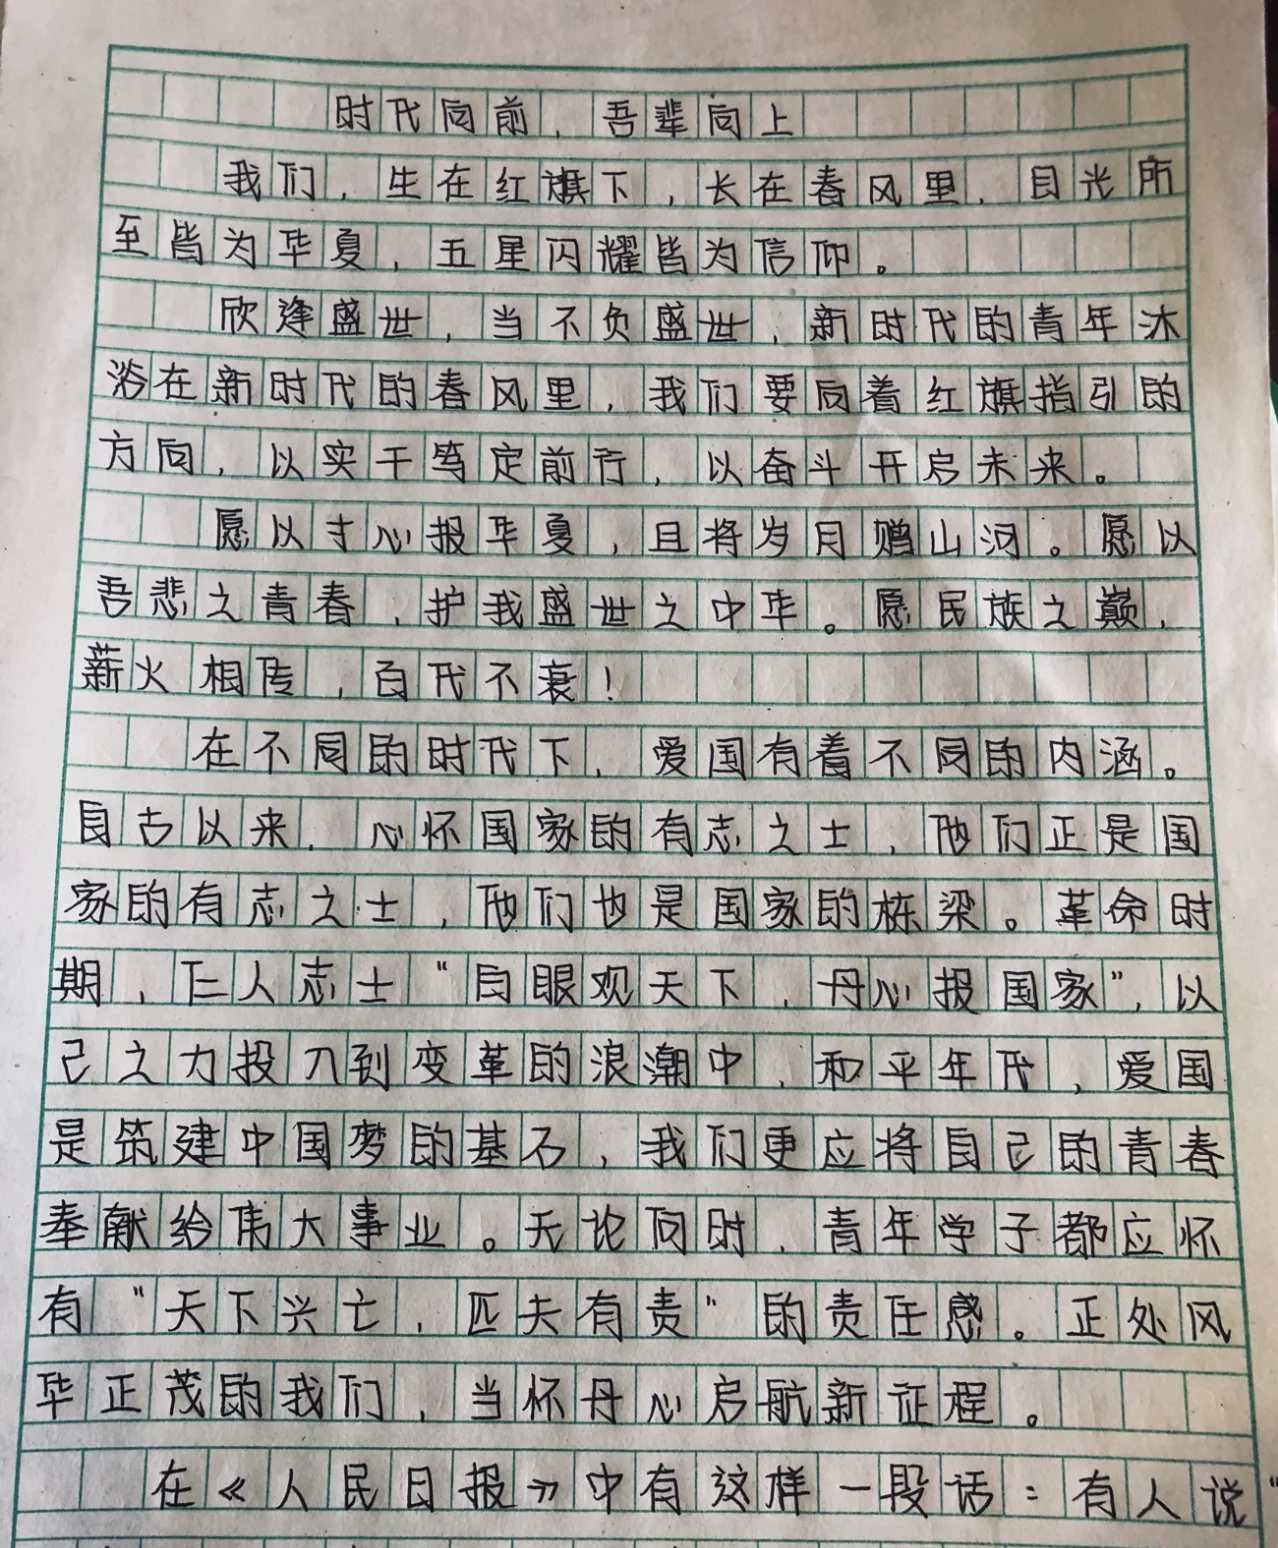 时代向前，吾辈向上
我们，生在红旗下，长在春风里，目光所
至皆为华夏，五星闪耀皆为信仰。
欣逢盛世，当不负盛世，新时代的青年沐
浴在新时代的春风里，我们要向着红旗指引的
方向，以实干笃定前行，以奋斗开启未来。
愿以寸心报华夏，且将岁月赠山河。愿以
吾悲之青春，护我盛世之中华。愿民族之巅，
薪火相传，百代不衰！
在不同的时代下，爱国有着不同的内涵。
自古以来，心怀国家的有志之士，他们正是国
家的有志之士，他们也是国家的栋梁。革命时
期，仁人志士“自眼观天下，丹心报国家”，以
己之力投入到变革的浪潮中，和平年代，爱国
是筑建中国梦的基石，我们更应将自己的青春
奉献给伟大事业。无论何时，青年学子都应怀
有“天下兴亡，匹夫有责”的责任感。正处风
华正茂的我们，当怀丹心启航新征程。
在《人民日报》中有这样一段话：有人说“